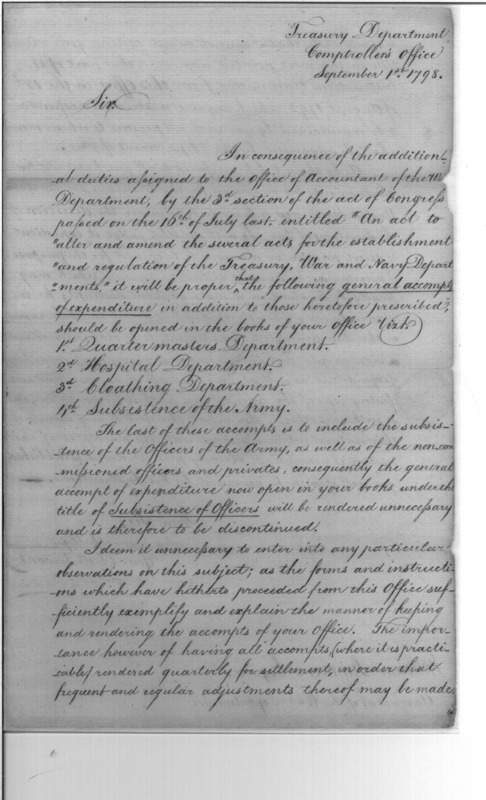 Treasury Department,
Comptroller's Office
September 1st 1798.
Sir.
In consequence of the addition-
al duties assigned to the Office of Accountant of the
Department, by the 3d section of the act of Congress
passed on the 16th of July last, entitled "An act to
"alter and amend the several acts for the establishment
"and regulation of the Treasury, War and Navy Depart
"ments," it will be proper that the following general accompts
of expenditure in addition to those heretofore prescribed,
should be opened in the books of your Office (vizt.)
1st Quartermasters Department.
2d Hospital Department.
3d Cloathing Department.
4th Subsistence of the Army.
The last of these accompts is to include the subsis-
tence of the Officers of the Army, as well as of the non com
missioned officers and privates, consequently the general
accompt of expenditure now open in your books under the
title of Subsistence of Officers will be rendered unnecessary
and is therefore to be discontinued.
I deem it unnecessary to enter into any particular
observations on this subject; as the forms and instructi-
ons which have hitherto proceeded from this Office suf-
ficiently exemplify and explain the manner of keeping
and rendering the accompts of your Office. The impor-
tance however of having all accompts, (where it is practi-
cable) rendered quarterly for settlement, in order that
frequent and regular adjustments thereof may be made